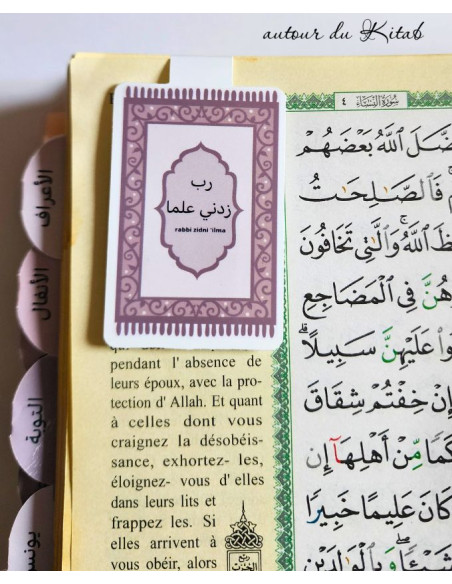 autour du Kitab
سورة النساء ٤
رب
زدني علما
rabbi zidni 'ilma
الأعراف
الأنفال
التوبة
يونس
pendant l' absence de
leurs époux, avec la pro-
tection d' Allah. Et quant
à celles dont vous
craignez la désobéis-
sance, exhortez- les,
éloignez- vous d' elles
dans leurs lits et
frappez les. Si
elles arrivent à
vous obéir, alors
ربع
الحزب
ٱللَّهُ بَعْضَهُمْ
فَٱلصَّـٰلِحَـٰتُ
ٱللَّهُ وَٱلَّـٰتِى تَخَافُونَ
فِى ٱلْمَضَاجِعِ
عَلَيْهِنَّ سَبِيلًا
خِفْتُمْ شِقَاقَ
مِّنْ أَهْلِهَآ إِن
كَانَ عَلِيمًا خَبِيرًا
وَبِٱلْوَٰلِدَيْنِ